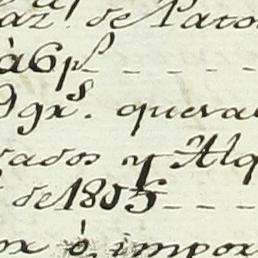 az. de Pato
à 6 p.s
9 gx.s. queval
rados y Alq
de 1805
ox é impox